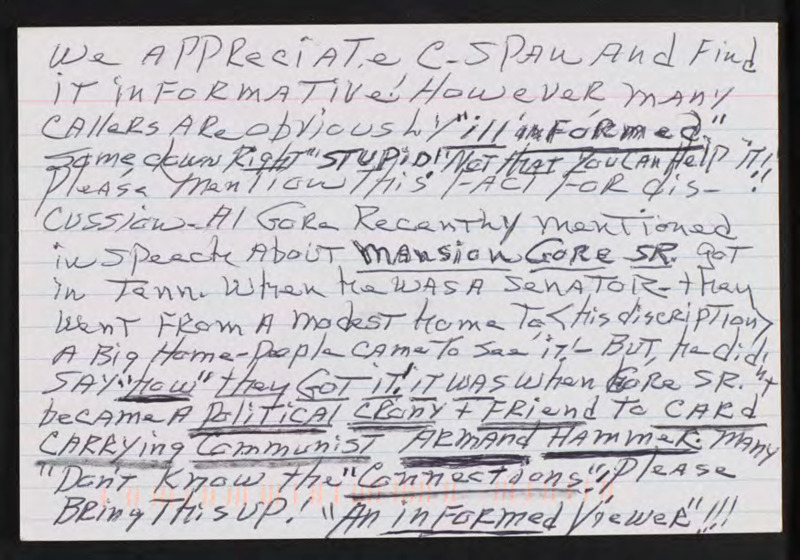 We APPReciATe C-SPAN And Find
iT inFoRMATiVe! HoweveR MANy
CAllers ARe obvious Ly "ill inFoRmed"
some down Right "STUPiD!" NoT that You CAN Help iT!!
Please mention This FACT FoR dis-
cussion-Al GoRe Recenthy mentioned
in speech AbouT MAnsion GoRe SR. goT
in Tenn. when He wAS A SenAToR-they
wenT FRom A modesT Home To <His discription>
A Big Home-People cAme To see iT!- BUT, he didn't
SAY "how" they GoT iT! iT wAS when GoRe SR.
becAme A PoliTicAl CRony + FRiend To CARd
CARRying Communist ARmAnd HAmmeR. MANy
"Don't Know the "Connections", Please
BRing This UP! "An inFoRmed VieweR"!!!